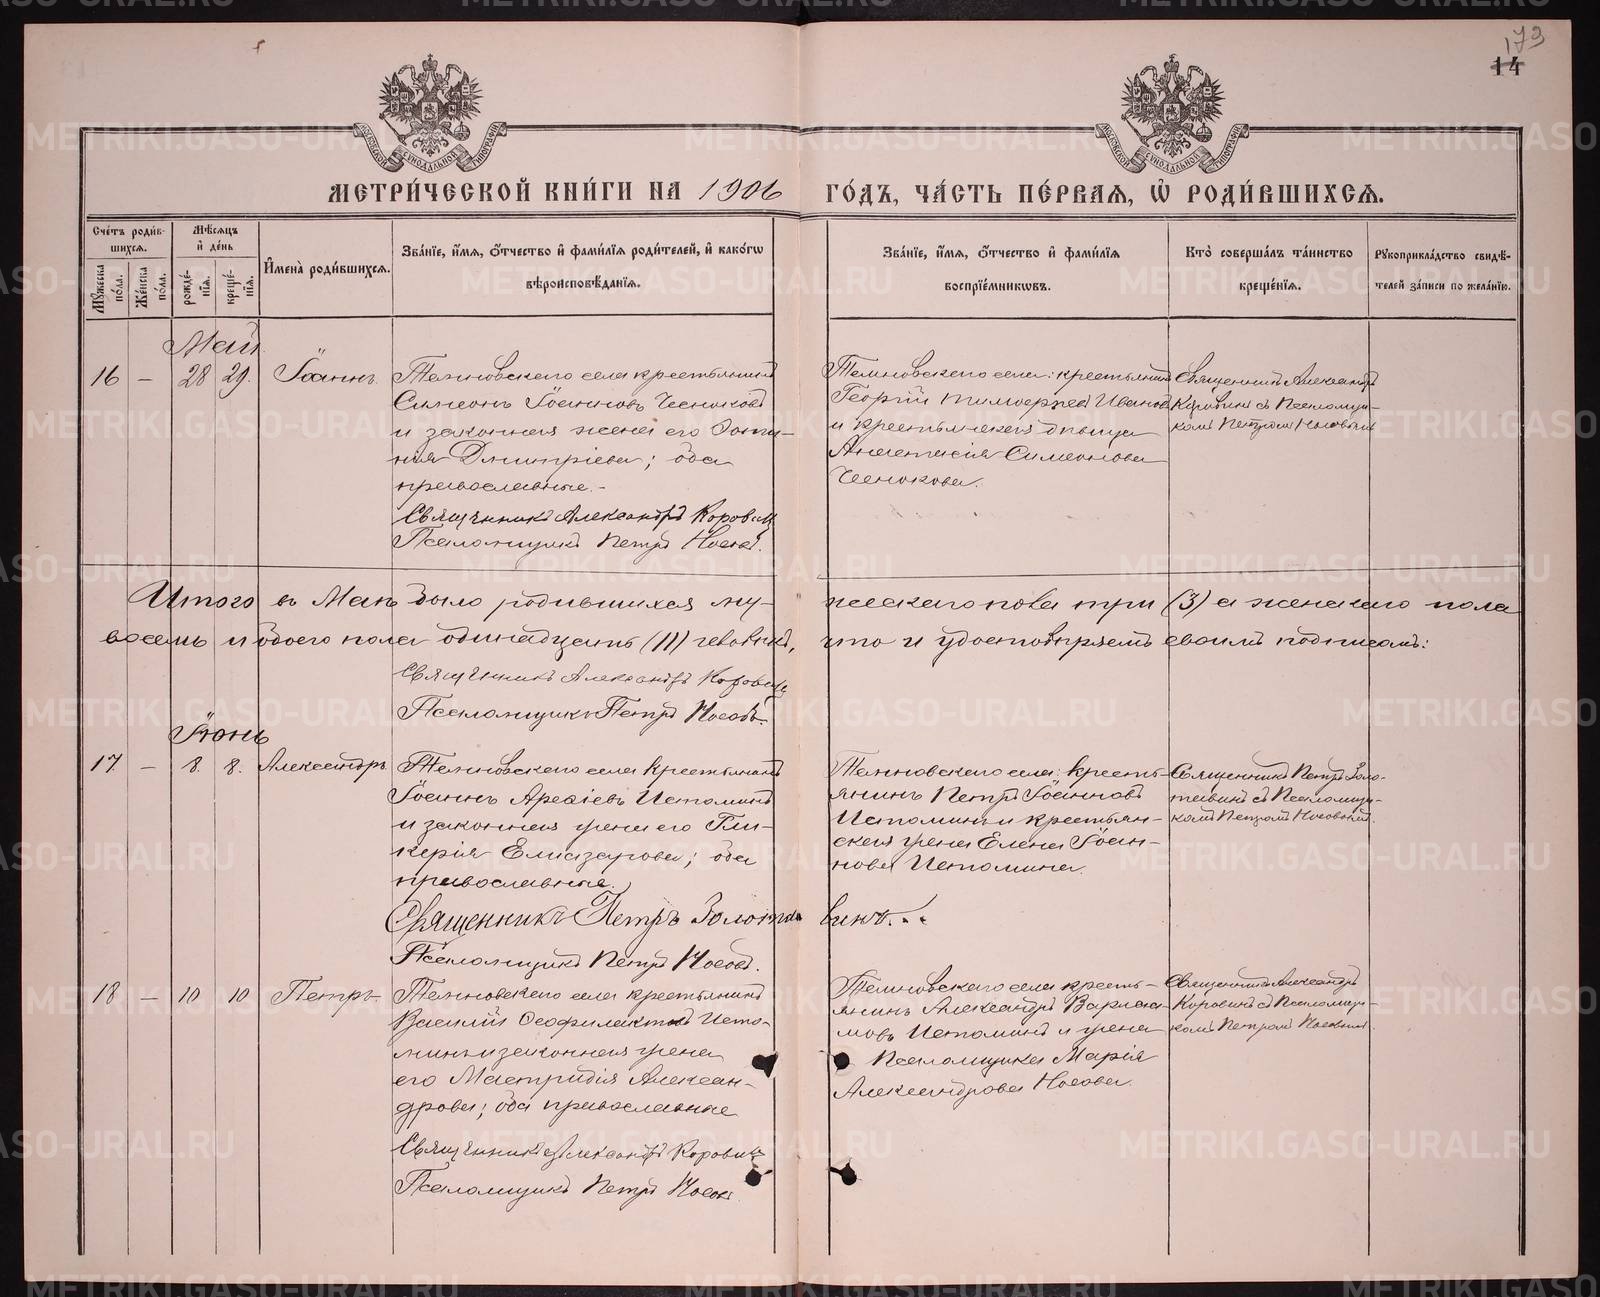 173
14
МОСКОВСКОЙ СѴНОДАЛЬНОЙ ТИПОГРАФІИ
МОСКОВСКОЙ СѴНОДАЛЬНОЙ ТИПОГРАФІИ
МЕТРИ́ЧЕСКОЙ КНИ́ГИ НА 1906 ГО́ДЪ, ЧА́СТЬ ПЕ́РВАЯ, Ѽ РОДИ́ВШИХСЯ.
Сче́тъ роди́в-
шихся.
Мѣ́сяцъ
и҆ де́нь
Мꙋ́жеска по́ла.
Же́нска по́ла.
рожде́-
нїя.
креще́-
нїя.
И҆мена̀ роди́вшихся.
Зва́нїе, и҆́мя, ѻ҆́тчество и҆ фами́лїя роди́телей, и҆ како́гѡ
вѣроисповѣ́данїя.
Зва́нїе, и҆́мя, ѻ҆́тчество и҆ фами́лїя
воспрїе́мникѡвъ.
Кто̀ соверша́лъ та́инство
креще́нїя.
Рꙋкоприкла́дство свидѣ́-
телей за́писи по жела́нїю.
Май
16 — 28 29. Іоаннъ.
Темновскаго села крестьянинъ
Симеонъ Іоанновъ Чесноковъ
и законная жена его Фоти-
нія Дмитріева; оба
православные.-
Священникъ Александръ Коровинъ
Псаломщикъ Петръ Носовъ.
Темновскаго села: крестьянинъ
Георгій Тимоѳеевъ Ивановъ
и крестьянская дѣвица
Анастасія Симеонова
Чеснокова.
Священникъ Александръ
Коровинъ съ Псаломщи-
комъ Петромъ Носовымъ
Итого въ Маѣ было родившихся му-
жескаго пола три (3) а женскаго пола
восемь и обоего пола одинадцать (11) человѣкъ,
что и удостовѣряемъ своимъ подписомъ:
Священникъ Александръ Коровинъ
Псаломщикъ Петръ Носовъ.
Іюнь
17 — 8. 8. Александръ.
Темновскаго села крестьянинъ
Іоаннъ Истоминъ
и законная жена его Гли-
керія Елиазарова; оба
православные.
Священникъ Петръ Золотавинъ.
Псаломщикъ Петръ Носовъ.
Темновскаго села: кресть-
янинъ Петръ Іоанновъ
Истоминъ и крестьян-
ская жена Елена Іоан-
нова Истомина.
Священникъ Петръ Золо-
тавинъ съ Псаломщи-
комъ Петромъ Носовымъ.
18 — 10 10 Петръ
Темновскаго села крестьянинъ
Василій Ѳеофилактовъ Исто-
минъ и законная жена
его Мастридія Алексан-
дрова; оба православные
Священникъ Александръ Коровинъ
Псаломщикъ Петръ Носовъ.
Темновскаго села кресть-
янинъ Александръ Варлаа-
мовъ Истоминъ и жена
Псаломщика Марія
Александрова Носова.
Священникъ Александръ
Коровинъ съ Псаломщи-
комъ Петромъ Носовымъ.
METRIKI.GASO-URAL.RU